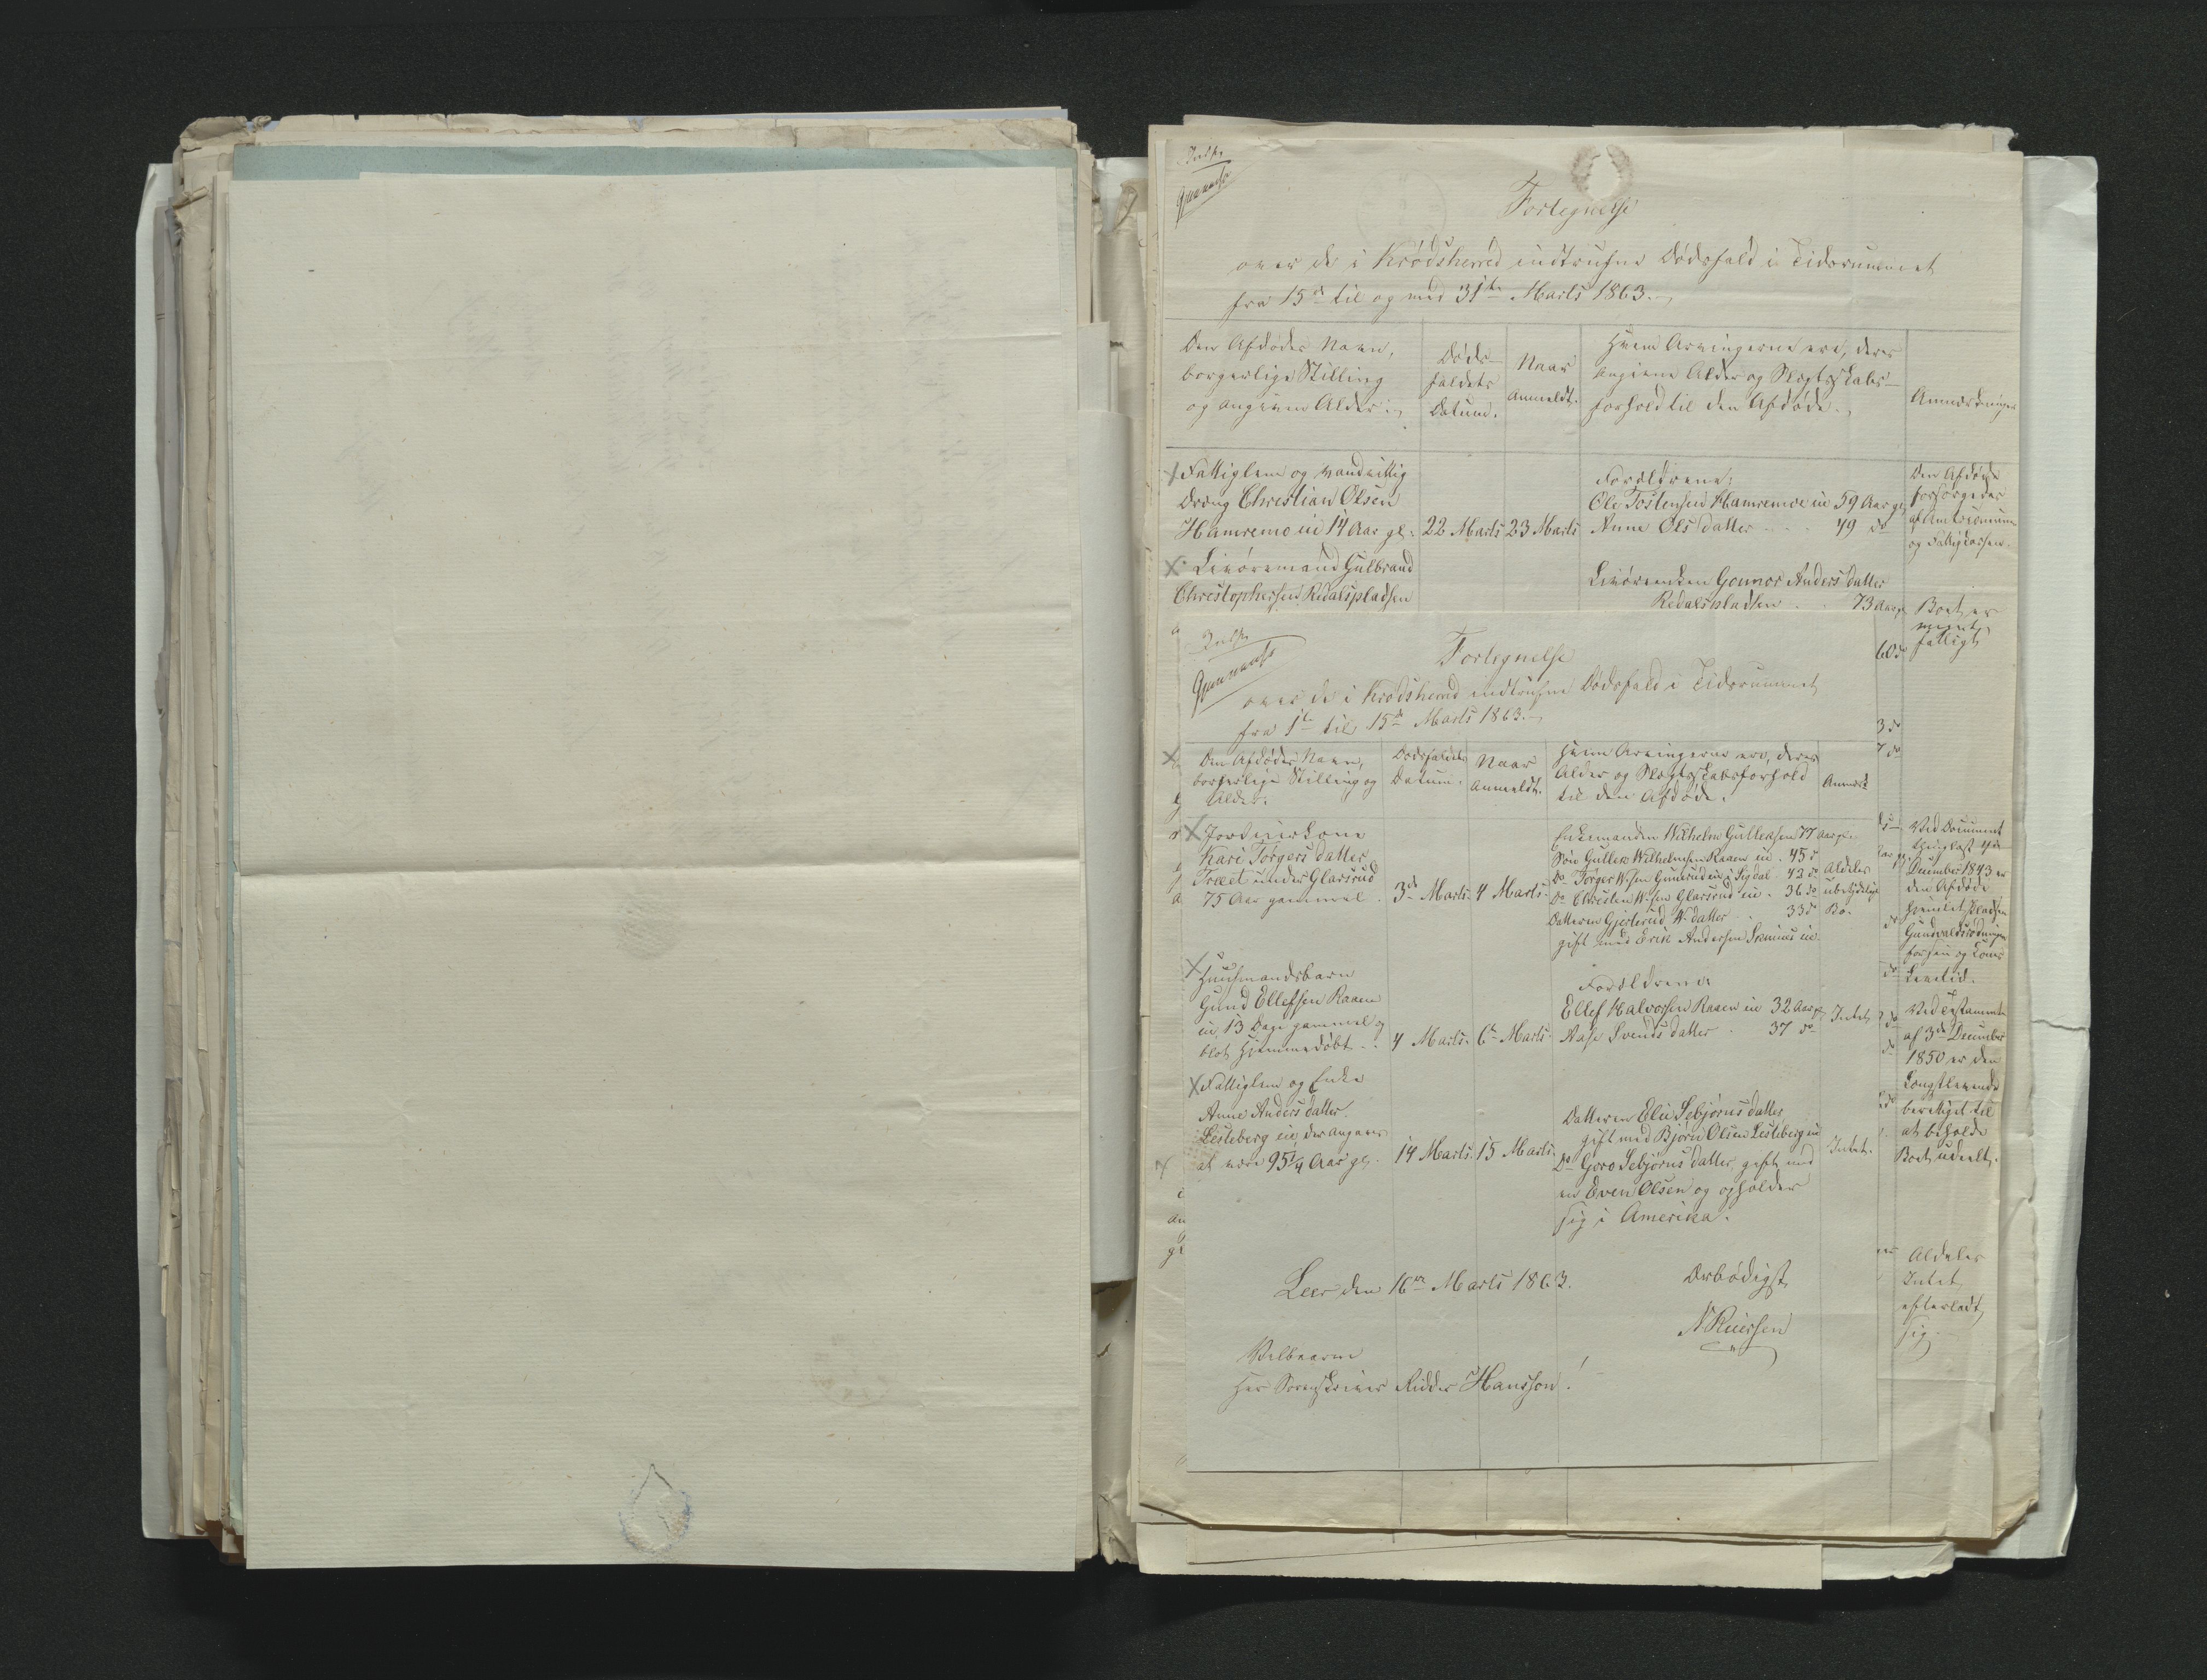 Fortegnelse
over de i Krødsherred indtrufne Dødsfald i Tidsrummet
fra 15de til og med 31te Marts 1863.
Den Afdødes Navn,
borgerlige Stilling
og angivne Alder.
Døds-
faldets
Datum.
Naar
Anmeldt.
Hvem Arvingerne ere, deres
angivne Alder og Slegtskabs-
forhold til den Afdøde.
Anmærkninger
Fattiglem og vandvittig
Dreng Christian Olsen
Hamremo in 14 Aar gl.
22 Marts
23 Marts
Forældrene:
Ole Tostensen Hamremoe in 59 Aar gl.
Anne Ols datter 49 do
Den Afdøde
forsørgedes
af Amtscommunen
og Fattigkassen.
Livøremand Gulbrand
Christophersen Redalspladsen
Livørenken Gounor Anders datter
Redalspladsen 73 Aar gl.
Boet er
meget
fattigt
60 do
Fortegnelse
over de i Krødsherred indtrufne Dødsfald i Tidsrummet
fra 1te til 15de Marts 1863.
Den Afdødes Navn,
borgerlige Stilling og
Alder.
Dødsfaldets
Datum.
Naar
Anmeldt.
Hvem Arvingerne ere, deres
Alder og Slegtskabsforhold
til den Afdøde.
Anmærk
Kari Torgers datter
Træet under Glarsrud
75 Aar gammel
3de Marts
4 Marts
Enkemanden Wilhelm Gulleksen 77 Aar gl.
Søn Gullek Wilhelmsen Raaen in 45 do
Do Torger W.sen Gunerud in i Sigdal 42 do
Do Christen W.sen Glarsrud in 36 do
Datteren Gjertrud W. datter 33 do
gift med Erik Andersen Skinnes in
Aldeles
ubetydeligt
Bo.
Huusmandsbarn
Gund Ellefsen Raaen
in, 13 Dage gammel og
blot Hjemmedøbt
4 Marts.
6te Marts
Forældrene
Ellef Halvorsen Raaen in 32 Aar gl.
Aase Svends datter 37 do
Intet
Fattiglem og Enke
Anne Anders datter
Lesteberg in, der angaves
at være 95 1/4 Aar gl.
14 Marts.
15 Marts
Datteren Elie Sebjørns datter
gift med Bjørn Olsen Lesteberg in
Do Goro Sebjørns datter, gift med
en Even Olsen og opholder
sig i Amerika.
Intet.
Leer den 16de Marts 1863.
Ærbødigst
Velbaarne
Her Sorenskriver Ridder Hansson!
Ved Document
thinglæst 4de
December 1843 er
den Afdøde
hjemlet Pladsen
Gunvaldsrødningen
for sin og Kones
Levetid.
Ved Testamente
af 3de December
1850 er den
Længstlevende
berettiget til
at beholde
Boet udeelt.
Aldeles
Intet
efterladt
sig.